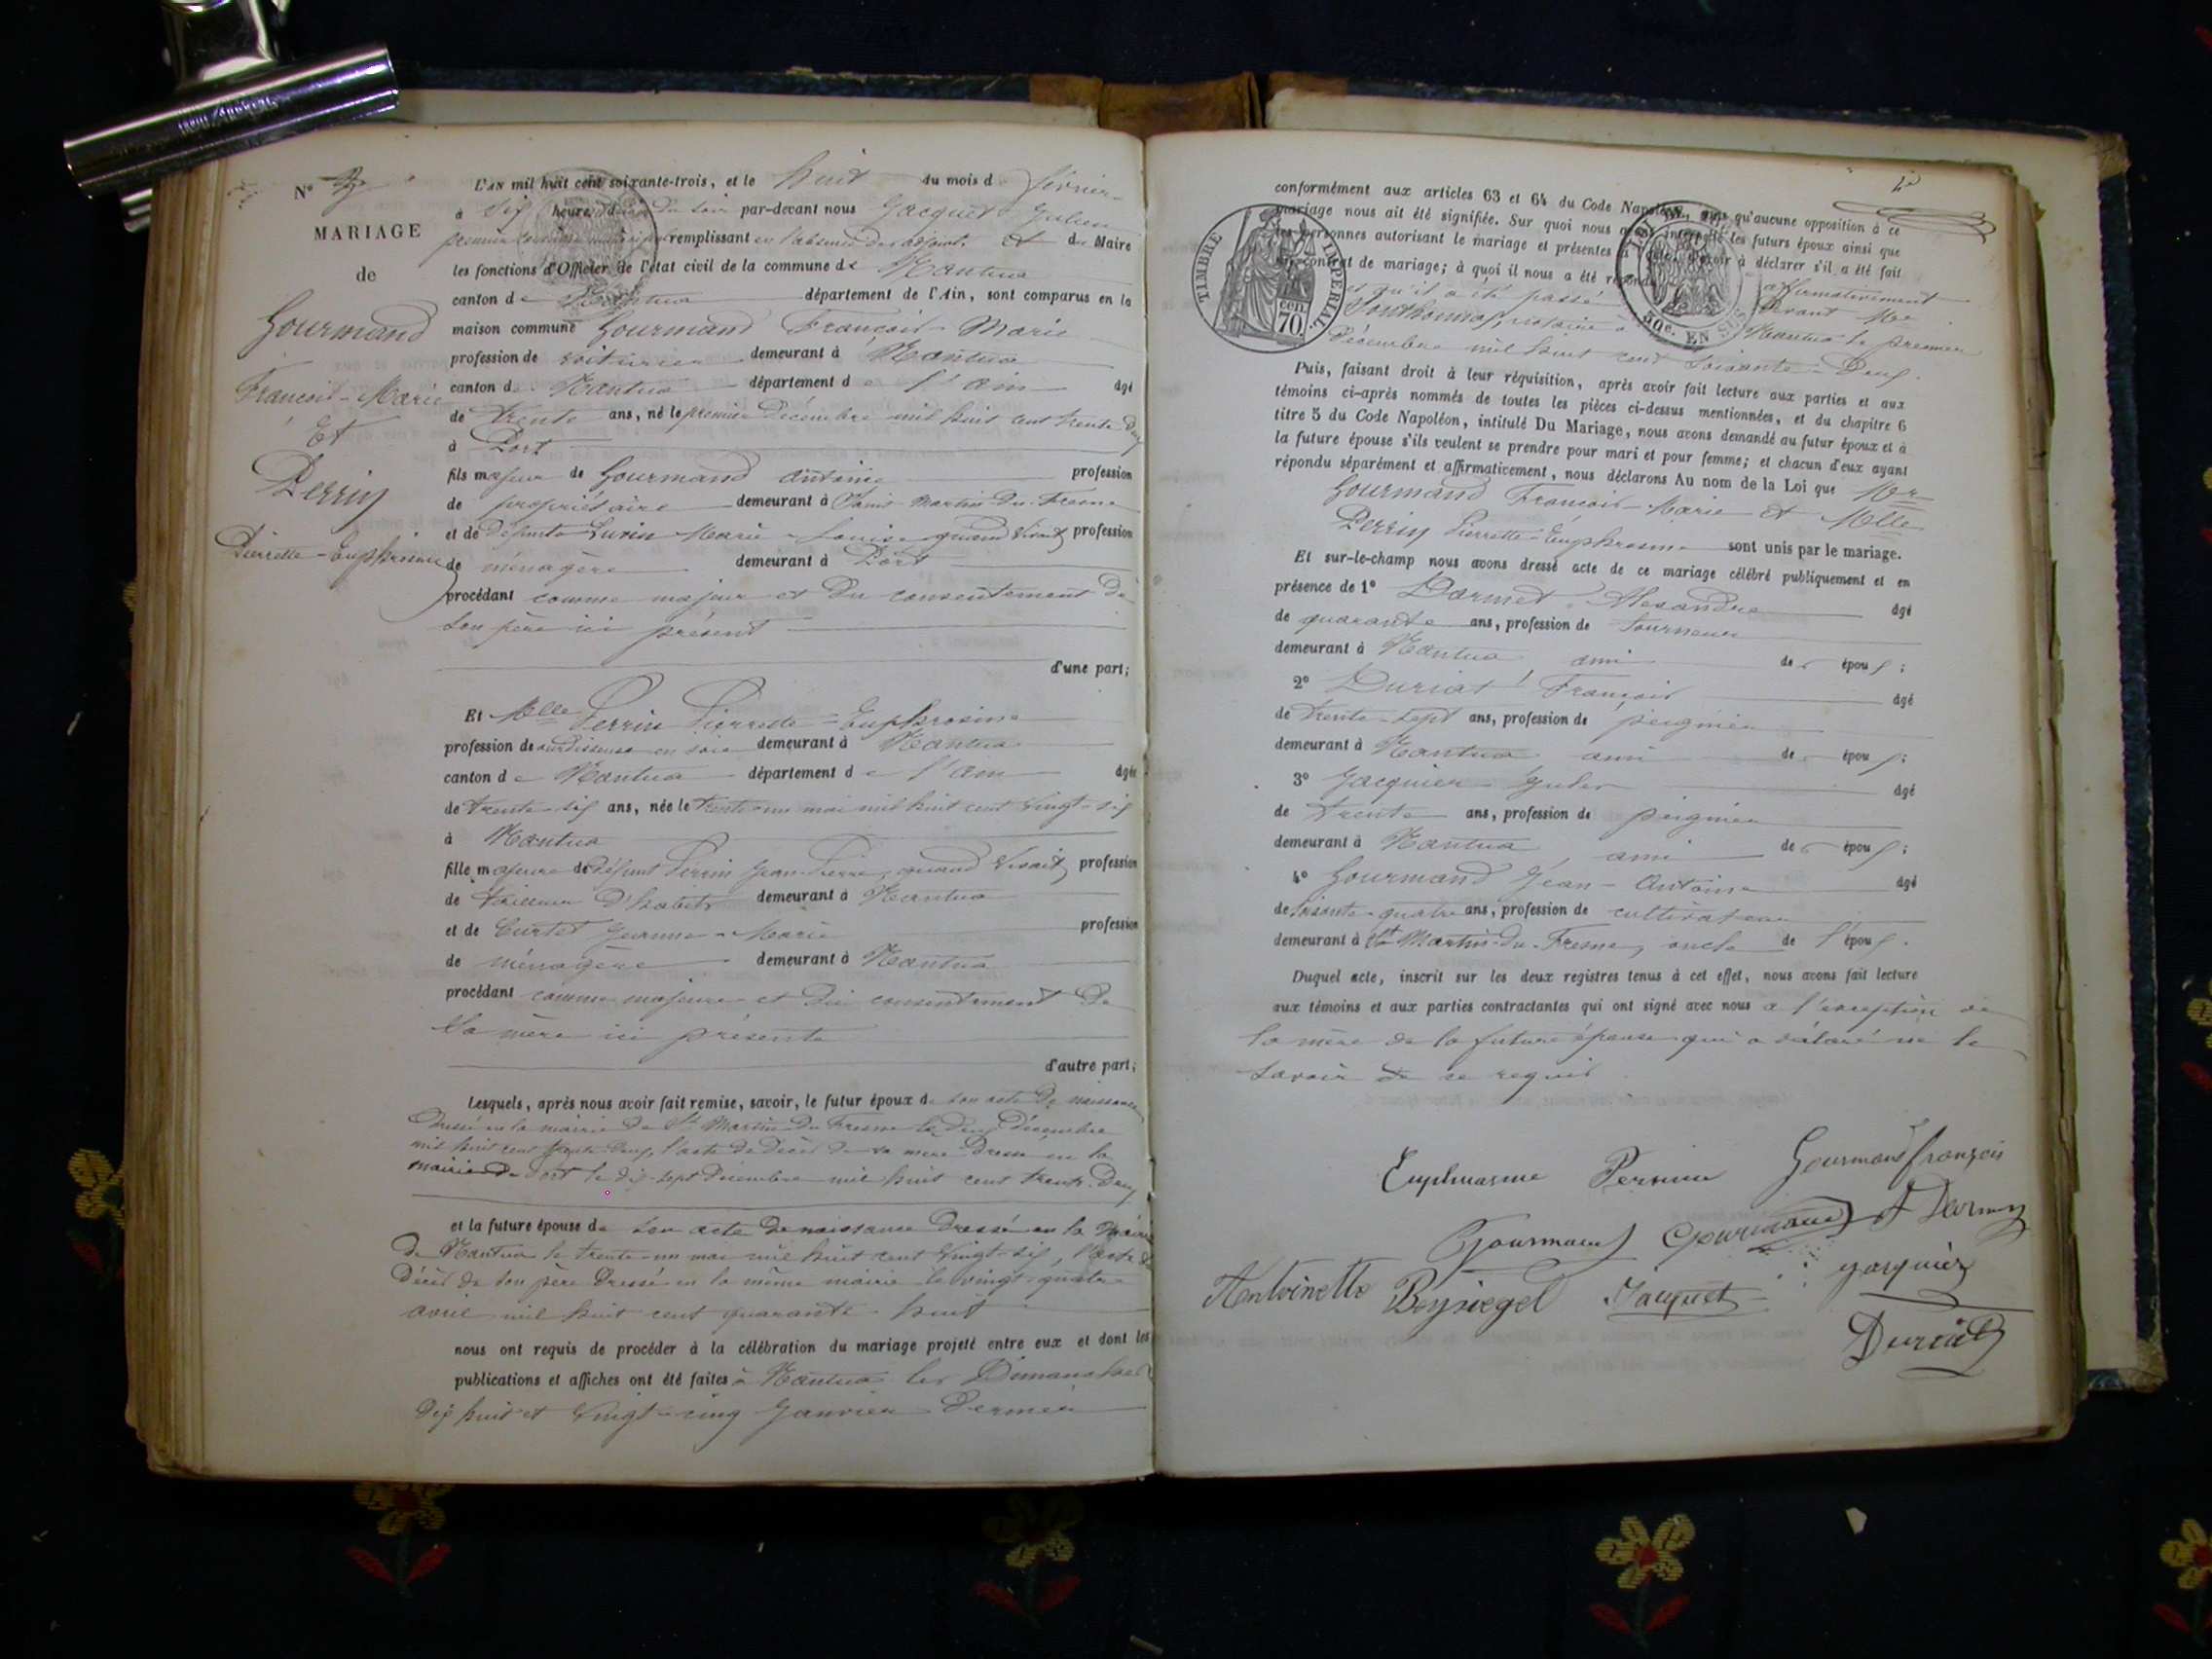 N°
MARIAGE
de
Gourmand
François-Marie
Et
Perrin
Pierrette-Euphrosine
L'AN mil huit cent soixante-trois, et le huit du mois de février
à six heures du soir par-devant nous Jacquet Julien
premier conseiller municipal remplissant en l'absence des adjoints et du Maire
les fonctions d'Officier de l'état civil de la commune de Nantua
canton de Nantua département de l'Ain, sont comparus en la
maison commune Gourmand François-Marie
profession de voiturier demeurant à Nantua
canton de Nantua département de l'Ain âgé
de trente ans, né le premier Décembre mil huit cent trente deux
à Port
fils majeur de Gourmand Antoine profession
de propriétaire demeurant à Saint Martin du Fresne
et de défunte Marie-Louise quand vivait profession
de ménagère demeurant à Port
procédant comme majeur et du consentement de
son père ici présent
d'une part;
Et Melle Perrin Pierrette-Euphrosine
profession de ourdisseuse en soie demeurant à Nantua
canton de Nantua département de l'Ain âgée
de trente-six ans, née le trente-un mai mil huit cent vingt-six
à Nantua
fille majeure de défunt Perrin Jean-Pierre, quand vivait profession
de tailleur d'habits demeurant à Nantua
et de Curtet Jeanne-Marie profession
de ménagère demeurant à Nantua
procédant comme majeure et du consentement de
sa mère ici présente
d'autre part;
Lesquels, après nous avoir fait remise, savoir, le futur époux de son acte de naissance
dressé en la mairie de St Martin-du-Fresne le deux Décembre
mil huit cent trente-deux, l'acte de décès de sa mère dressé en la
mairie de Port le dix-sept Décembre mil huit cent trente-deux
et la future épouse de son acte de naissance dressé en la mairie
de Nantua le trente-un mai mil huit cent vingt-six, l'acte de
décès de son père dressé en la même mairie le vingt-quatre
avril mil huit cent quarante-huit
nous ont requis de procéder à la célébration du mariage projeté entre eux et dont les
publications et affiches ont été faites à Nantua les Dimanches
dix huit et vingt-cinq Janvier dernier
conformément aux articles 63 et 64 du Code Napoléon, sans qu'aucune opposition à ce
mariage nous ait été signifiée. Sur quoi nous avons interpellé les futurs époux ainsi que
les personnes autorisant le mariage et présentes d'avoir à déclarer s'il a été fait
un contrat de mariage; à quoi il nous a été répondu affirmativement
et qu'il a été passé devant Me
notaire à Nantua le premier
Décembre mil huit cent soixante-Deux.
TIMBRE IMPERIAL.
70 cen.
50c. EN SUS
Puis, faisant droit à leur réquisition, après avoir fait lecture aux parties et aux
témoins ci-après nommés de toutes les pièces ci-dessus mentionnées, et du chapitre 6
titre 5 du Code Napoléon, intitulé Du Mariage, nous avons demandé au futur époux et à
la future épouse s'ils veulent se prendre pour mari et pour femme; et chacun d'eux ayant
répondu séparément et affirmativement, nous déclarons Au nom de la Loi que Mr
Gourmand François-Marie et Melle
Perrin Pierrette-Euphrosine sont unis par le mariage.
Et sur-le-champ nous avons dressé acte de ce mariage célébré publiquement et en
présence de 1° Darmet Alexandre âgé
de quarante ans, profession de tourneur
demeurant à Nantua ami des époux;
2° Duriat François âgé
de trente-sept ans, profession de peignier
demeurant à Nantua ami des époux;
3° Jacquier Jules âgé
de trente ans, profession de peignier
demeurant à Nantua ami des époux;
4° Gourmand Jean-Antoine âgé
de soixante-quatre ans, profession de cultivateur
demeurant à St Martin-du-Fresne, oncle de l'époux.
Duquel acte, inscrit sur les deux registres tenus à cet effet, nous avons fait lecture
aux témoins et aux parties contractantes qui ont signé avec nous à l'exception de
la mère de la future épouse qui a déclaré ne le
savoir de ce requis
Euphrasine Perrin Gourmand françois
Gourmand Gourmand A Darmet
Antoinette Beysiegel Jacquet Jacquier
Duriat